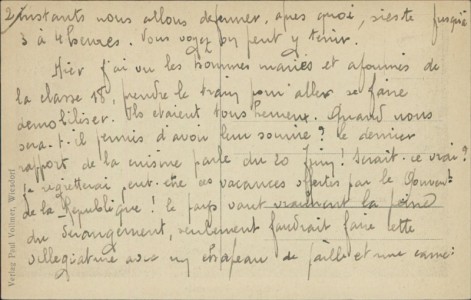 2/ instants nous allons déjeuner, après quoi, sieste jusque
3 à 4 heures. Vous voyez qu'on peut y tenir.
Hier j'ai vu les hommes mariés et affamés de
la classe 18, prendre le train pour aller se faire
démobiliser. Ils étaient tous heureux. Quand nous
sera-t-il permis d'avoir leur sourire ? Le dernier
rapport de la cuisine parle du 20 Juin ! Serait-ce vrai ?
Je regretterai peut-être ces vacances offertes par le Gouvent
de la République ! le pays vaut vraiment la peine
du dérangement, seulement faudrait faire cette
villégiature avec un chapeau de paille et une canne
Verlag Paul Vollmer, Wiesdorf